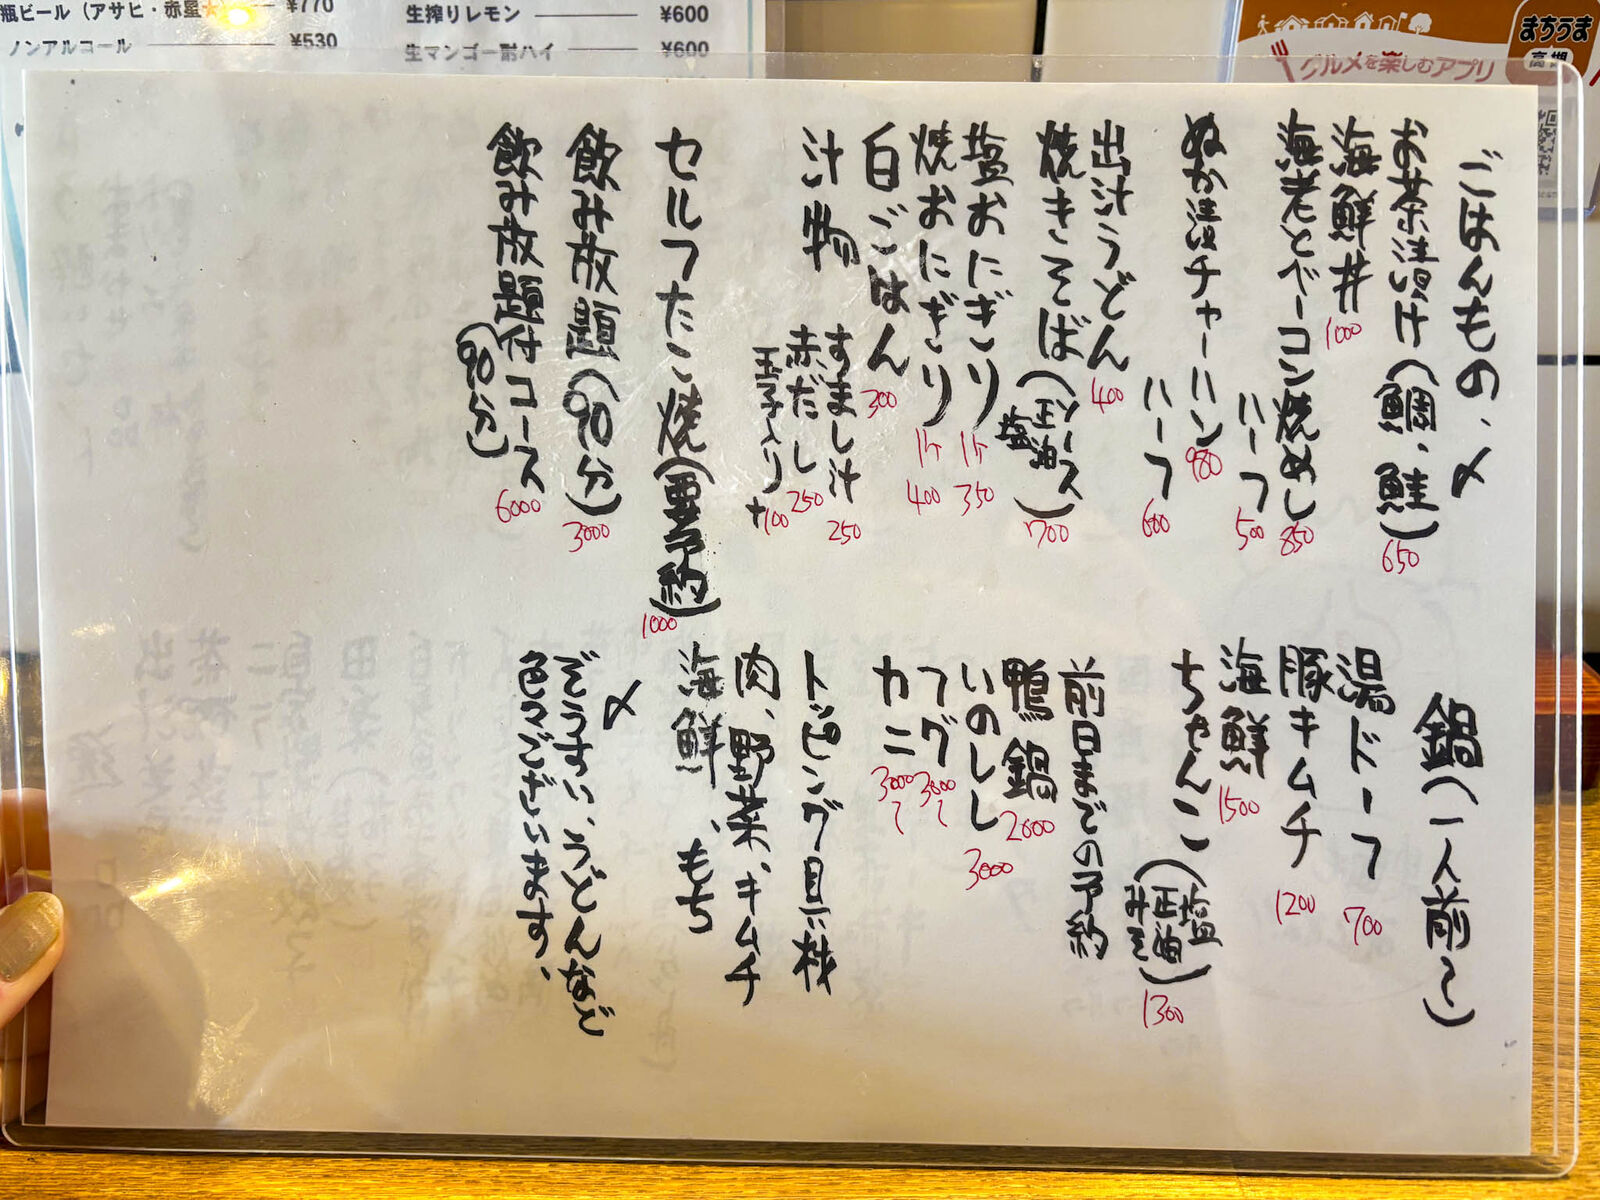 瓶ビール（アサヒ・赤星★ ¥770
ノンアルコール ¥530
生搾りレモン ¥600
生マンゴー酎ハイ ¥600
グルメを楽しむアプリ
まちうま
ごはんもの、〆
お茶漬け（鯛、鮭）650
海鮮丼 1000
海老とベーコン焼めし 850
ハーフ 500
ぬか漬チャーハン 980
ハーフ 600
出汁うどん 400
焼きそば（ソース 正油 塩）700
塩おにぎり 1ケ 350
焼おにぎり 1ケ 400
白ごはん 300
汁物
すまし汁 250
赤だし 250
玉子入り +100
セルフたこ焼（要予約）1000
飲み放題（90分）3000
飲み放題付コース（90分）6000
鍋（一人前〜）
湯ドーフ 700
豚キムチ 1200
海鮮 1500
ちゃんこ（塩 正油 みそ）1300
前日までの予約
鴨鍋 2600
いのしし 3000
フグ 3800〜
カニ 3000〜
トッピング具材
肉、野菜、キムチ
海鮮、もち
〆
ぞうすい、うどんなど
色々ございます、